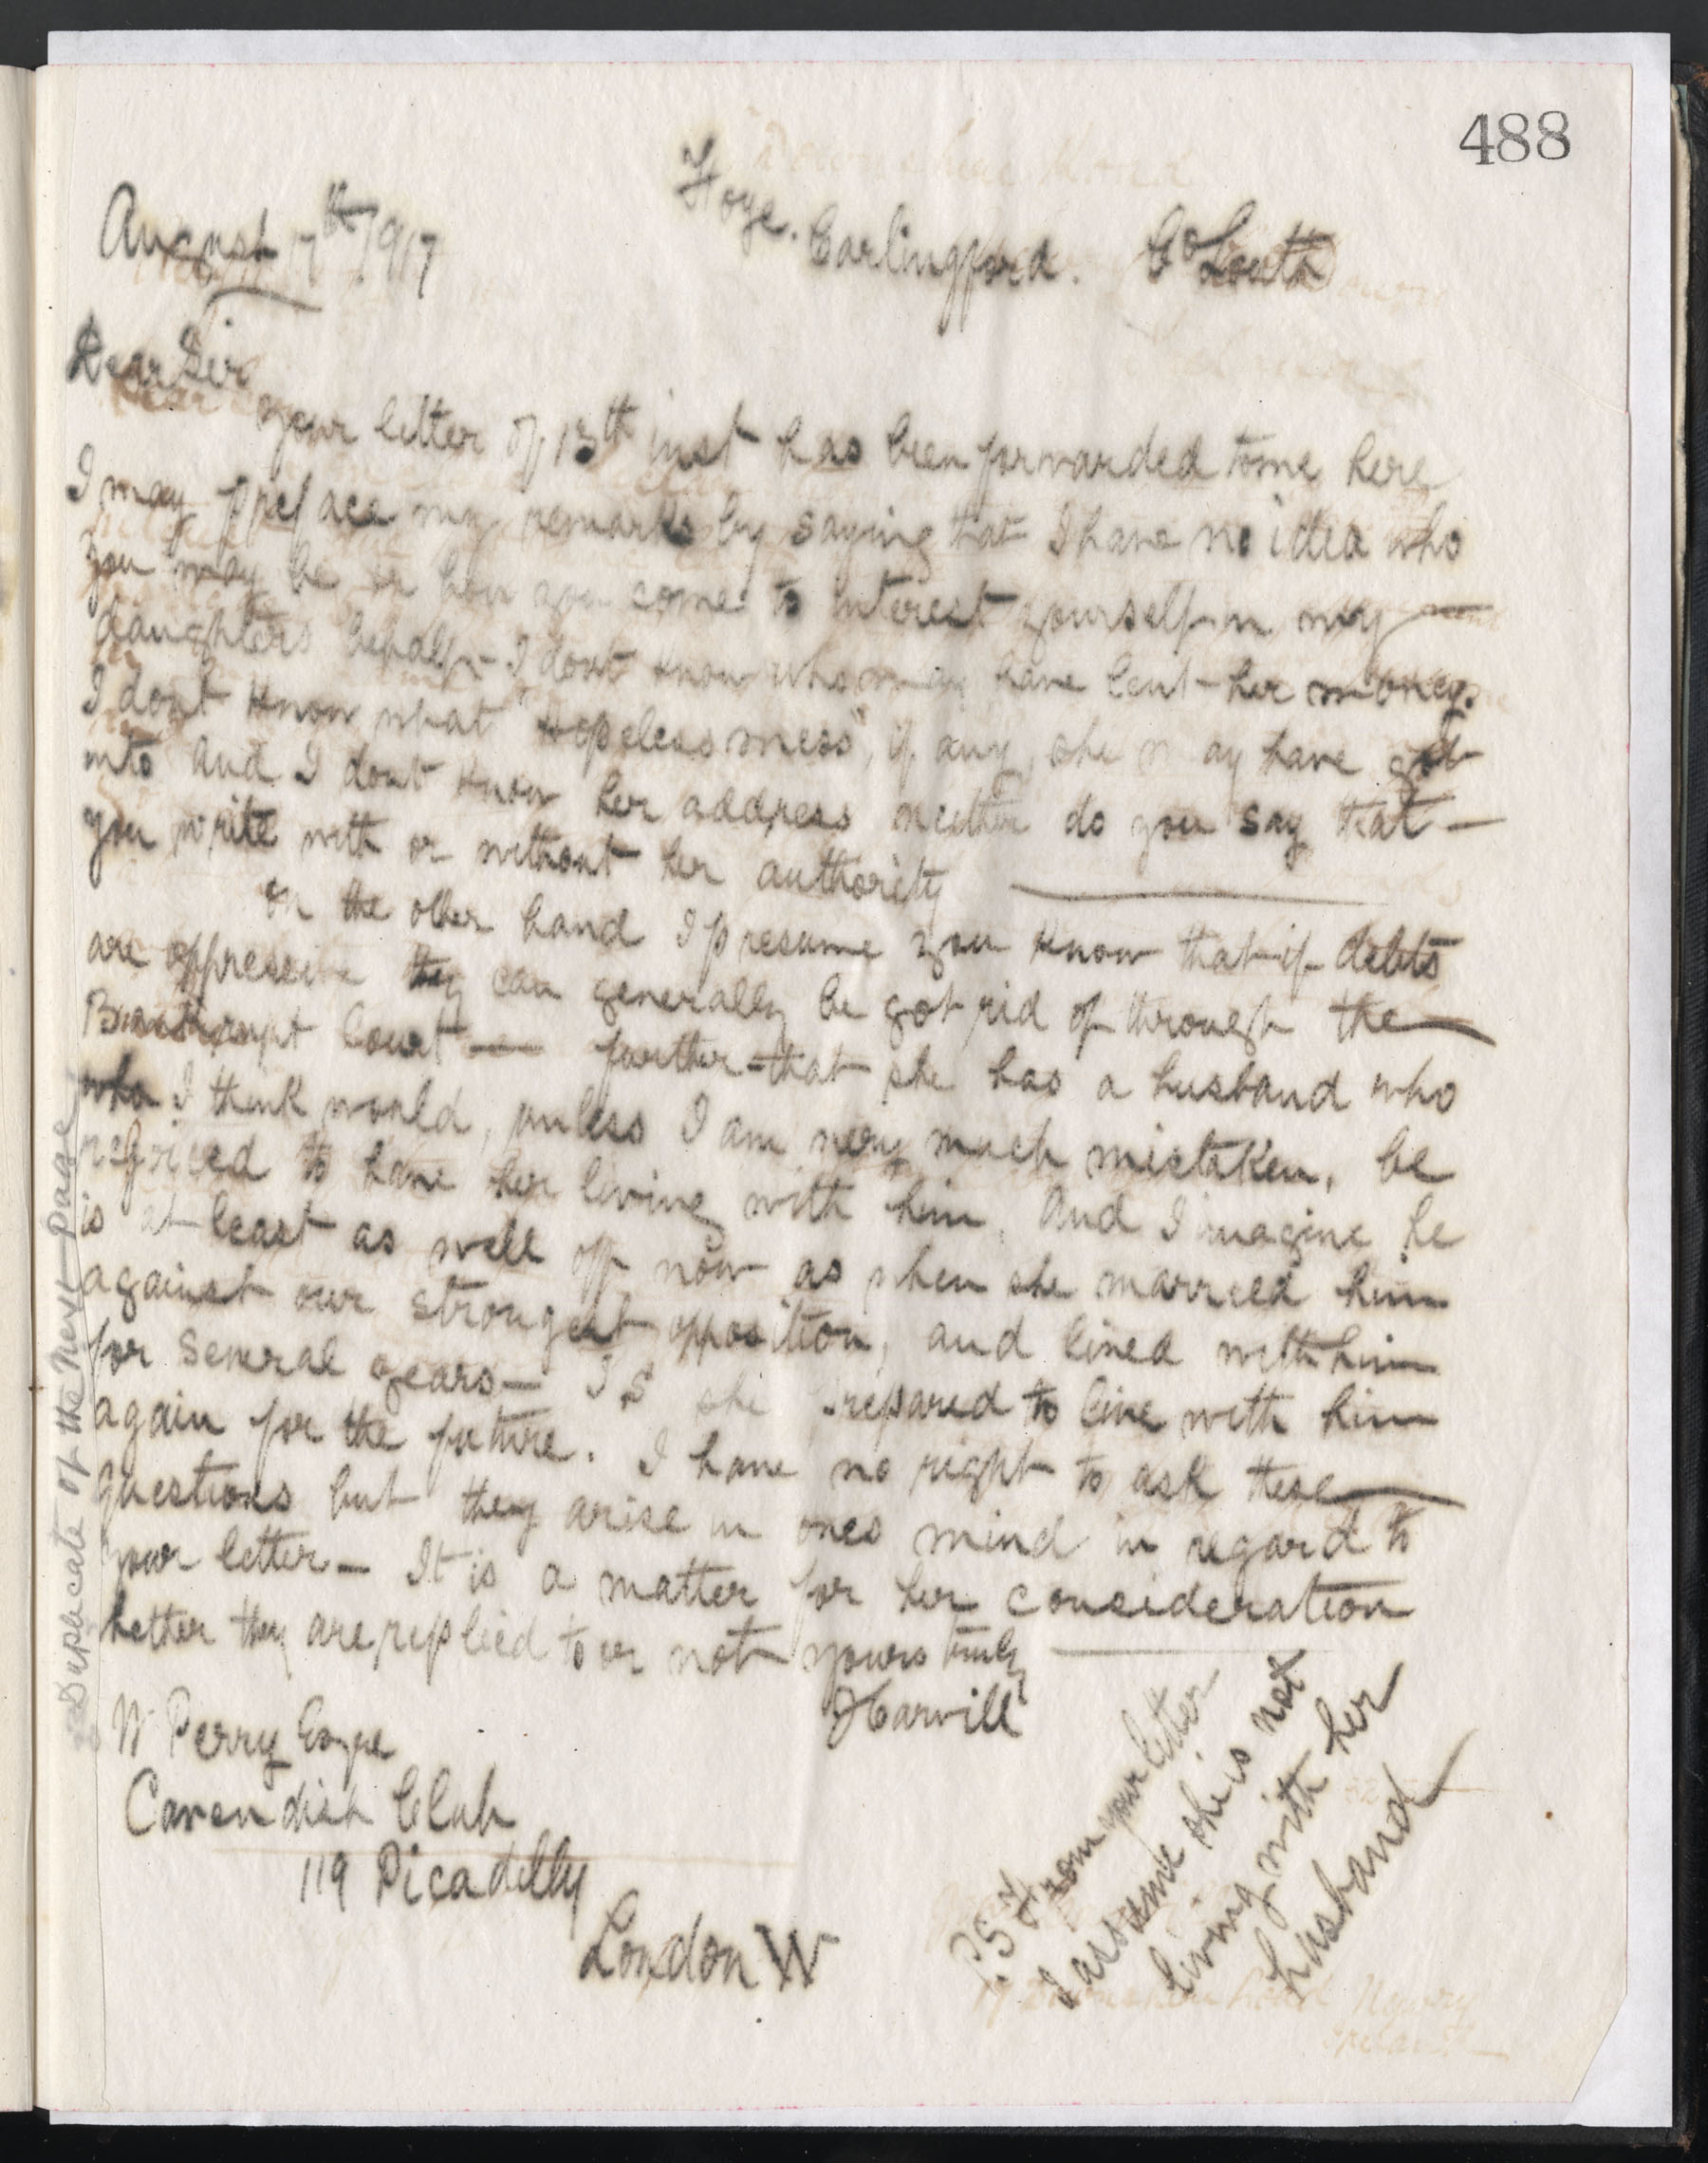 488
August 17th 1917
Foye. Carlingford. Co Louth
Dear Sir
your letter of 13th inst has been forwarded to me here
I may preface my remarks by saying that I have no idea who
you may be or how you come to interest yourself in my
daughters behalf - I dont know who may have lent her money.
I dont know what "hopeless mess", if any, she may have got
into and I dont know her address neither do you say that —
you write with or without her authority
On the other hand I presume you know that if debts
are oppressive they can generally be got rid of through the
Bankrupt Court — further - that she has a husband who
who I think would, unless I am very much mistaken, be
rejoiced to have her living with him. And I imagine he
is at least as well off now as when she married him
against our strongest opposition, and lived with him
for several years — Is she prepared to live with him
again for the future. I have no right to ask these
questions but they arise in ones mind in regard to
your letter — It is a matter for her consideration
hether they are replied to or not yours truly
W Perry Esqre
Cavendish Club
119 Picadilly
London W
PS From your letter
I assume she is not
living with her
husband
Duplicate of the Next page